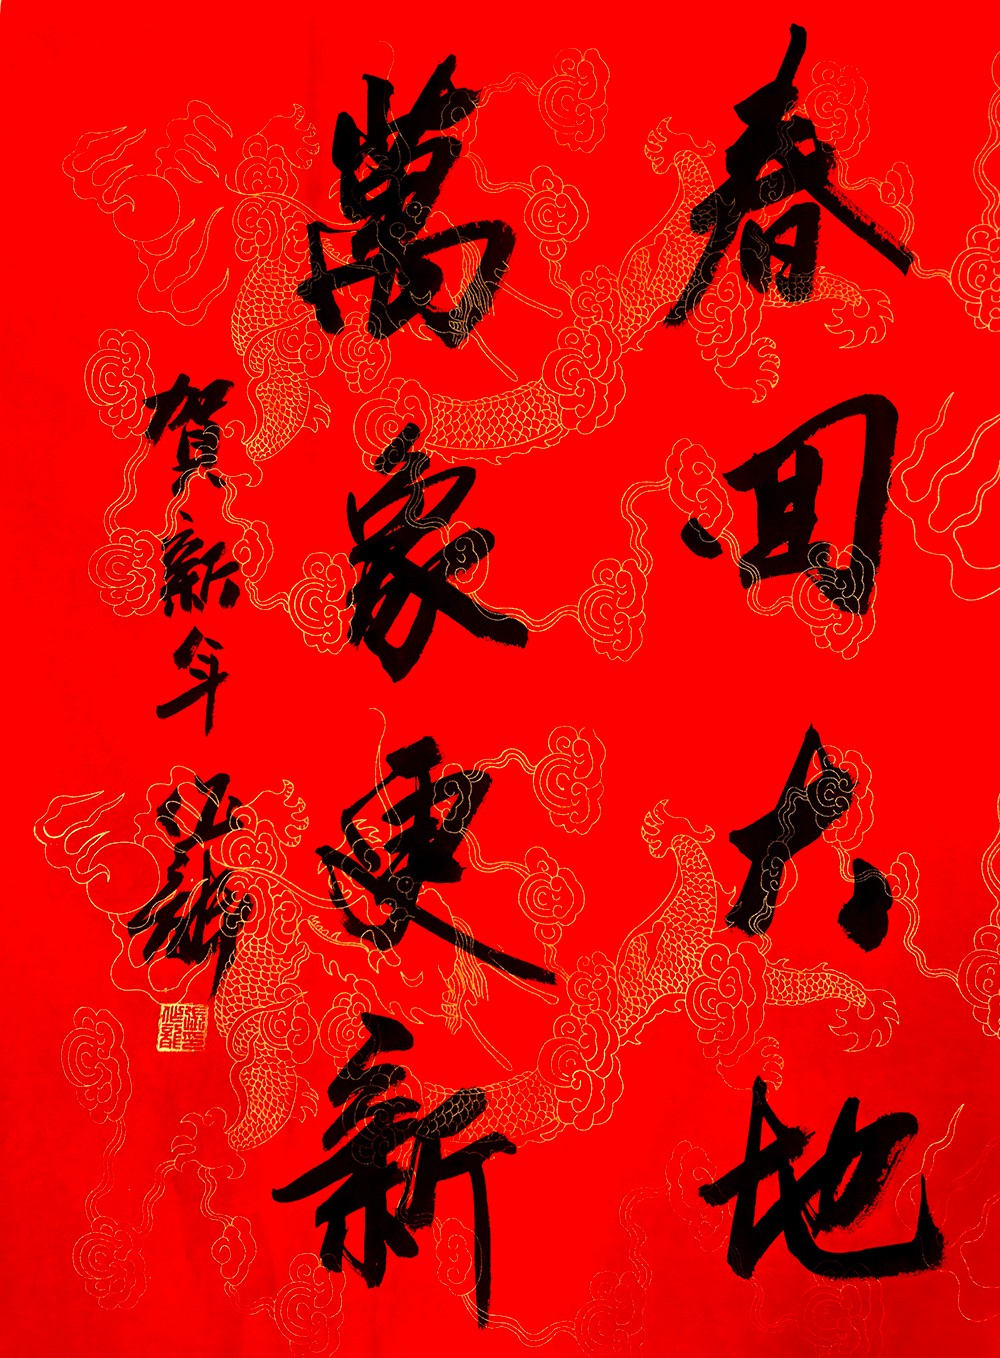 春回大地
萬象更新
賀新年